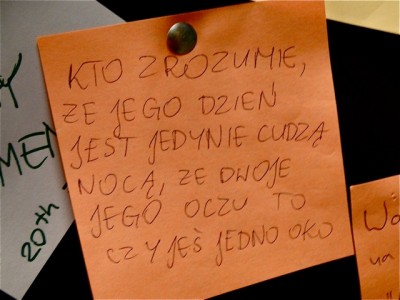 KTO ZROZUMIE,
ŻE JEGO DZIEŃ
JEST JEDYNIE CUDZĄ
NOCĄ, ŻE DWOJE
JEGO OCZU TO
CZYJEŚ JEDNO OKO
20th